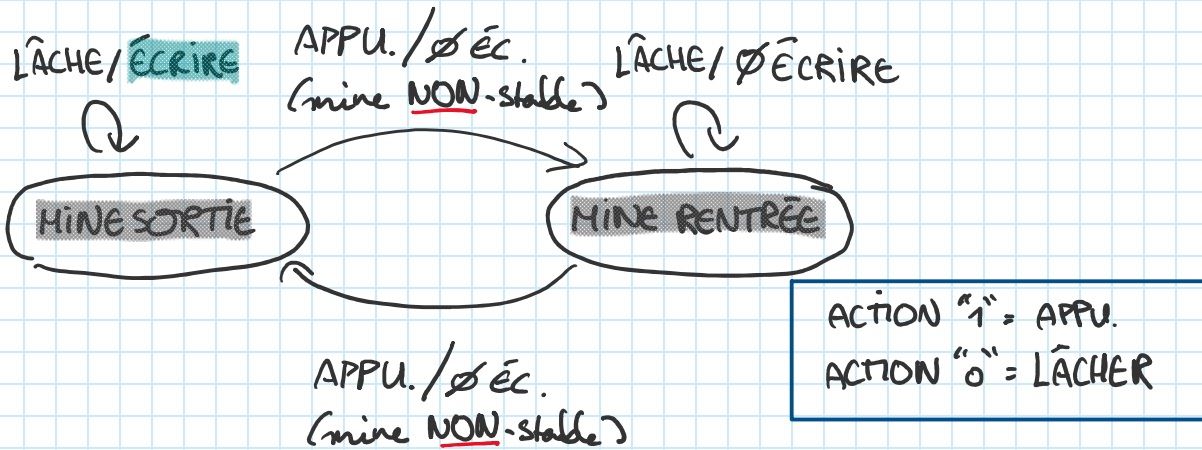 LÂCHE/ÉCRIRE
APPU./Ø ÉC.
(mine NON-stable)
LÂCHE/ØÉCRIRE
MINE SORTIE
MINE RENTRÉE
APPU./Ø ÉC.
(mine NON-stable)
ACTION "1" = APPU.
ACTION "0" = LÂCHER